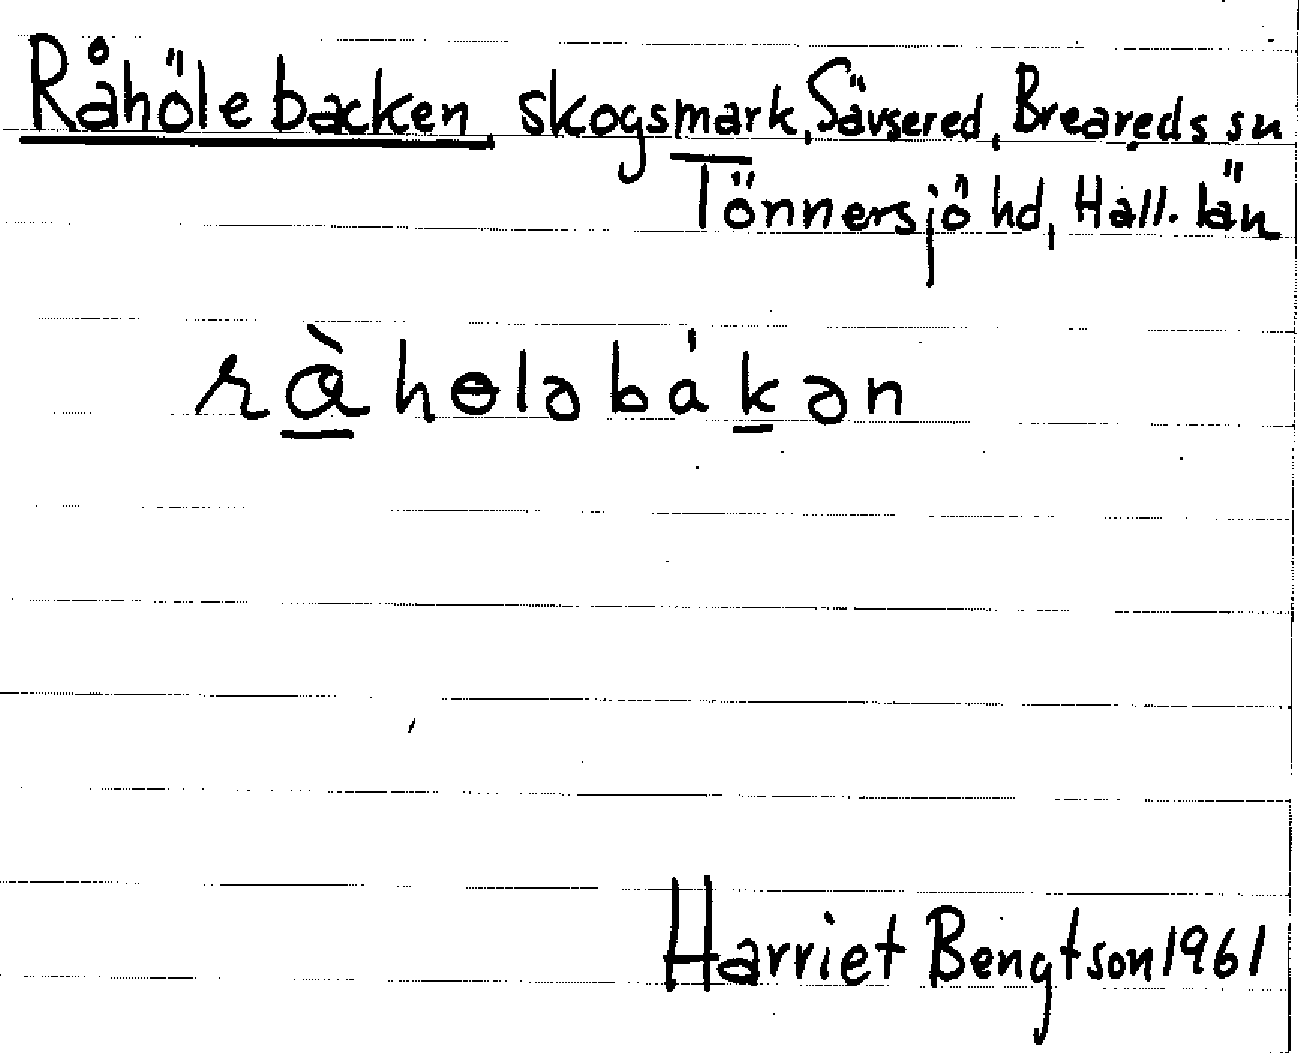 Råhölebacken, skogsmark, Sävsered, Breareds sn
Tönnersjö hd, Hall. län
rɑ̀hɵləbákən
Harriet Bengtson 1961